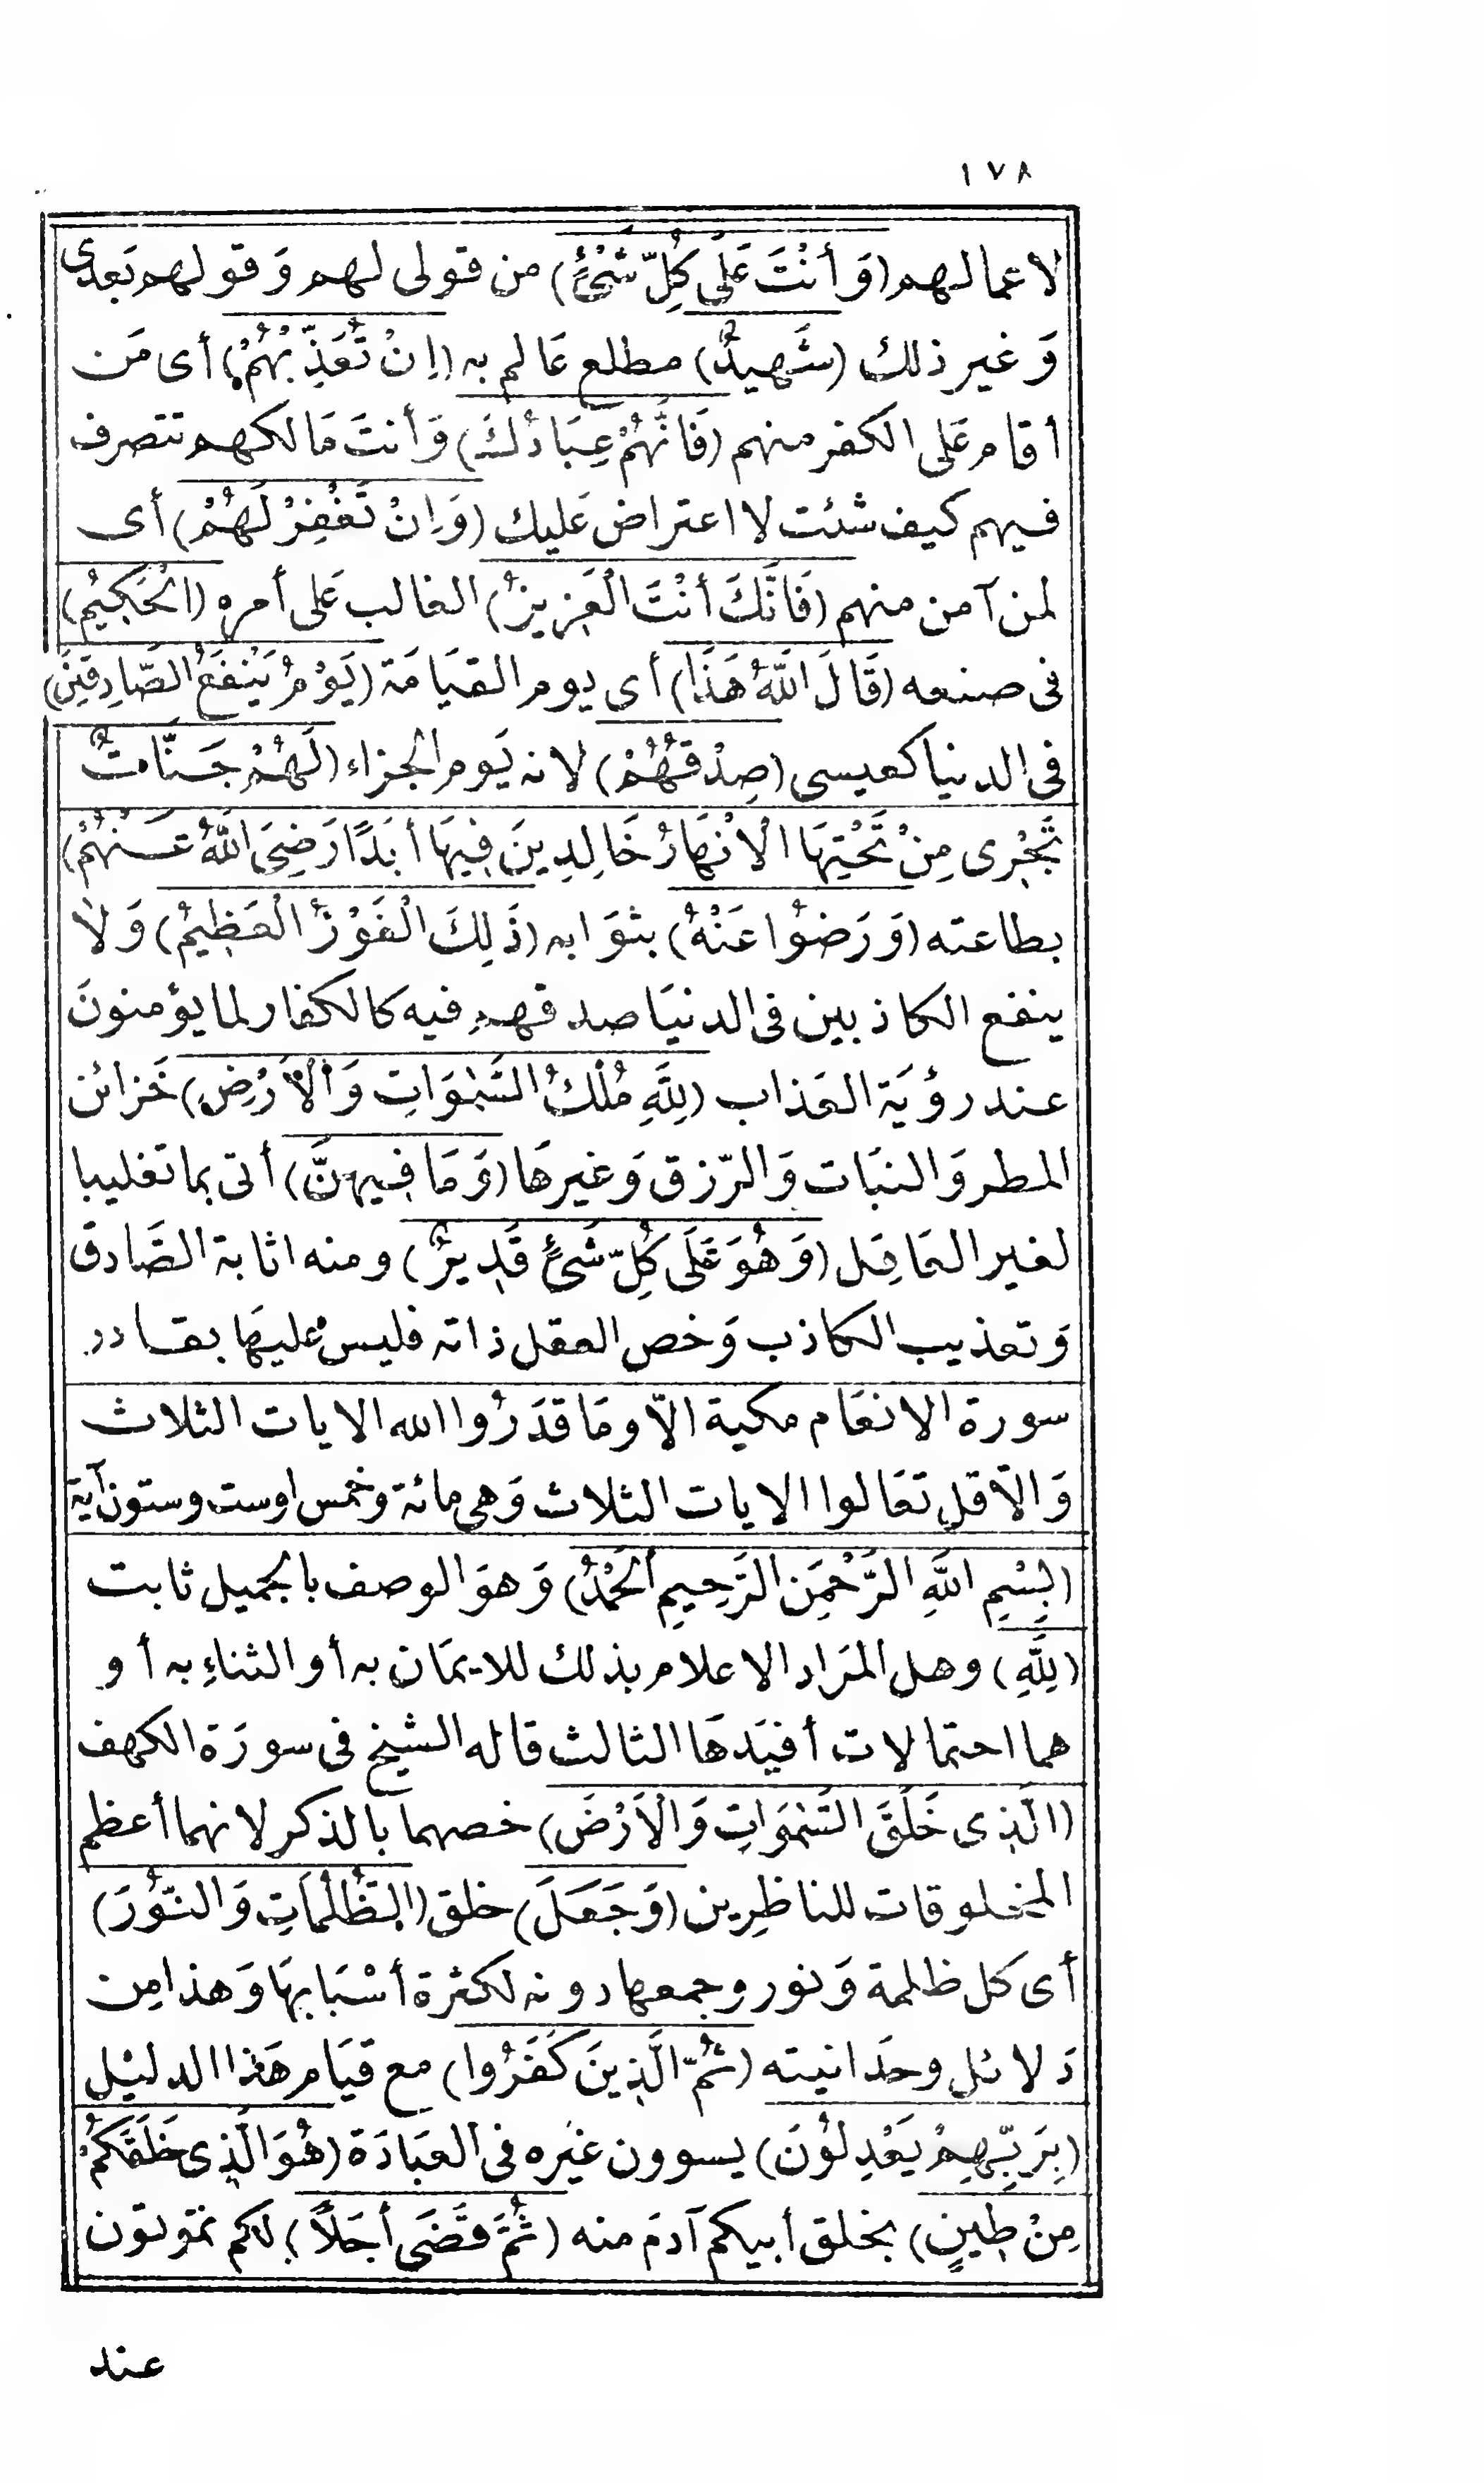 ١٧٨
لاعمالهم (وَأَنْتَ عَلَى كُلِّ شَىْءٍ) من قولى لهم وَقولهم بَعدى
وَغير ذلك (شَهِيدٌ) مطلع عَالم به (اِنْ تُعَذِّبْهُمْ) أى مَن
أقام عَلى الكفر منهم (فَاِنَّهُمْ عِبَادُكَ) وَأنتَ مَالكهم تتصرف
فيهم كيف شئت لا اعتراض عَليك (وَاِنْ تَغْفِرْ لَهُمْ) أى
لمن آمن منهم (فَاِنَّكَ أَنْتَ الْعَزِيزُ) الغالب عَلى أمره (الْحَكِيمُ)
فى صنعه (قَالَ اللَّهُ هَذَا) أى يوم القيَامَة (يَوْمُ يَنْفَعُ الصَّادِقِينَ)
فى الدنيا كعيسى (صِدْقُهُمْ) لانه يَوم الجزاء (لَهُمْ جَنَّاتٌ
تَجْرِى مِنْ تَحْتِهَا الْاَنْهَارُ خَالِدِينَ فِيهَا أَبَدًا رَضِىَ اللَّهُ عَنْهُمْ)
بطاعته (وَرَضُوا عَنْهُ) بثوَابه (ذَلِكَ الْفَوْزُ الْعَظِيمُ) وَلَا
ينفع الكاذبين فى الدنيَا صدقهم فيه كالكفار لما يؤمنونَ
عند رؤيَة العَذاب (لِلَّهِ مُلْكُ السَّمٰوَاتِ وَالْاَرْضِ) خَزائن
المطر وَالنبَات وَالرّزق وَغيرهَا (وَمَا فِيهِنَّ) أتى بما تغليبا
لغير العَاقِل (وَهُوَ عَلَى كُلِّ شَىْءٍ قَدِيرٌ) ومنه اثابة الصَّادق
وَتعذيب الكاذب وَخص العقل ذاته فليس عليهَا بقادر
سورة الانعَام مكية الاّ ومَا قدَرُوا الله الايات الثلاث
وَالاّ قل تعَالوا الايات الثلاث وَهى مائة وخمس اوست وستون آية
(بِسْمِ اللَّهِ الرَّحْمَنِ الرَّحِيمِ اَلْحَمْدُ) وَهوَ الوصف بالجميل ثابت
(لِلَّهِ) وهل المرَاد الاعلام بذلك للايمَان به أو الثناءِ به أو
هما احتمالات أفيَدهَا الثالث قاله الشيخ فى سورَة الكهف
(الَّذِى خَلَقَ السَّمٰوَاتِ وَالْاَرْضَ) خصهما بالذكر لانهما أعظم
المخلوقات للناظِرين (وَجَعَلَ) خلق (الظُّلُمَاتِ وَالنُّورَ)
أى كل ظلمة وَنور وجمعها دونه لكثرة أسْبَابهَا وَهذا مِن
دَلائل وحدَانيته (ثُمَّ الَّذِينَ كَفَرُوا) مع قيَام هَذا الدليْل
(بِرَبِّهِمْ يَعْدِلُونَ) يسوون غيْره فى العبَادَة (هُوَ الَّذِى خَلَقَكُمْ
مِنْ طِينٍ) بخلق أبيكم آدمَ منه (ثُمَّ قَضَى أَجَلًا) لكم تموتون
عند